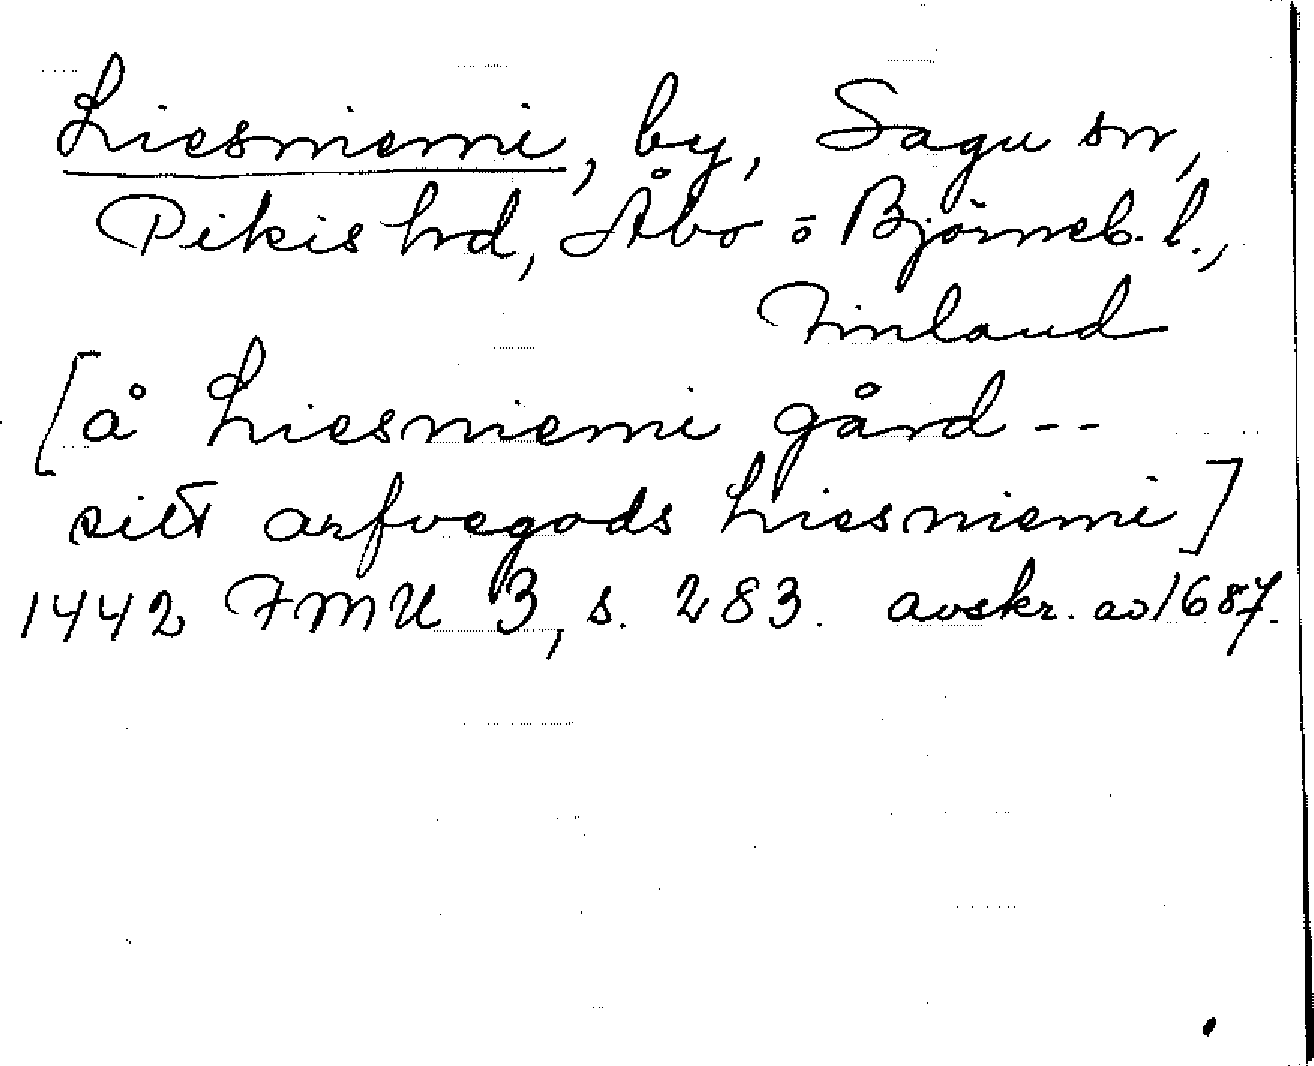 Liesniemi, by, Sagu sn,
Pikis hd, Åbo o Björneb. l.,
Finland
[å Liesniemi gård --
sitt arfvegods Liesniemi]
1442 FMU 3, s. 283. avskr. av 1687.